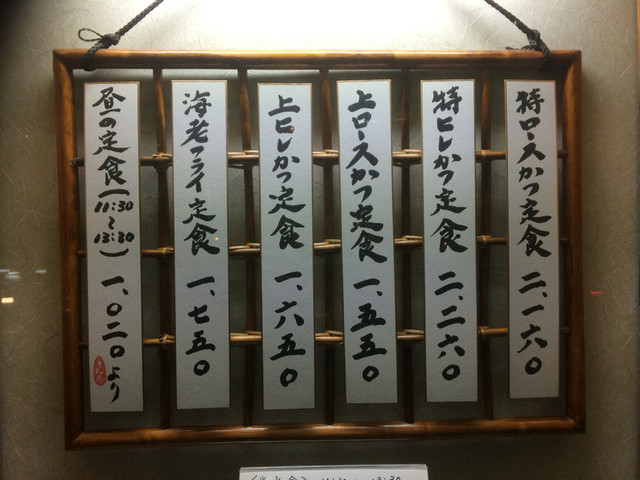 特ロースかつ定食 二、一六〇
特ヒレかつ定食 二、二六〇
上ロースかつ定食 一、五五〇
上ヒレかつ定食 一、六五〇
海老フライ定食 一、七五〇
昼の定食(11:30〜13:30) 一、〇二〇より